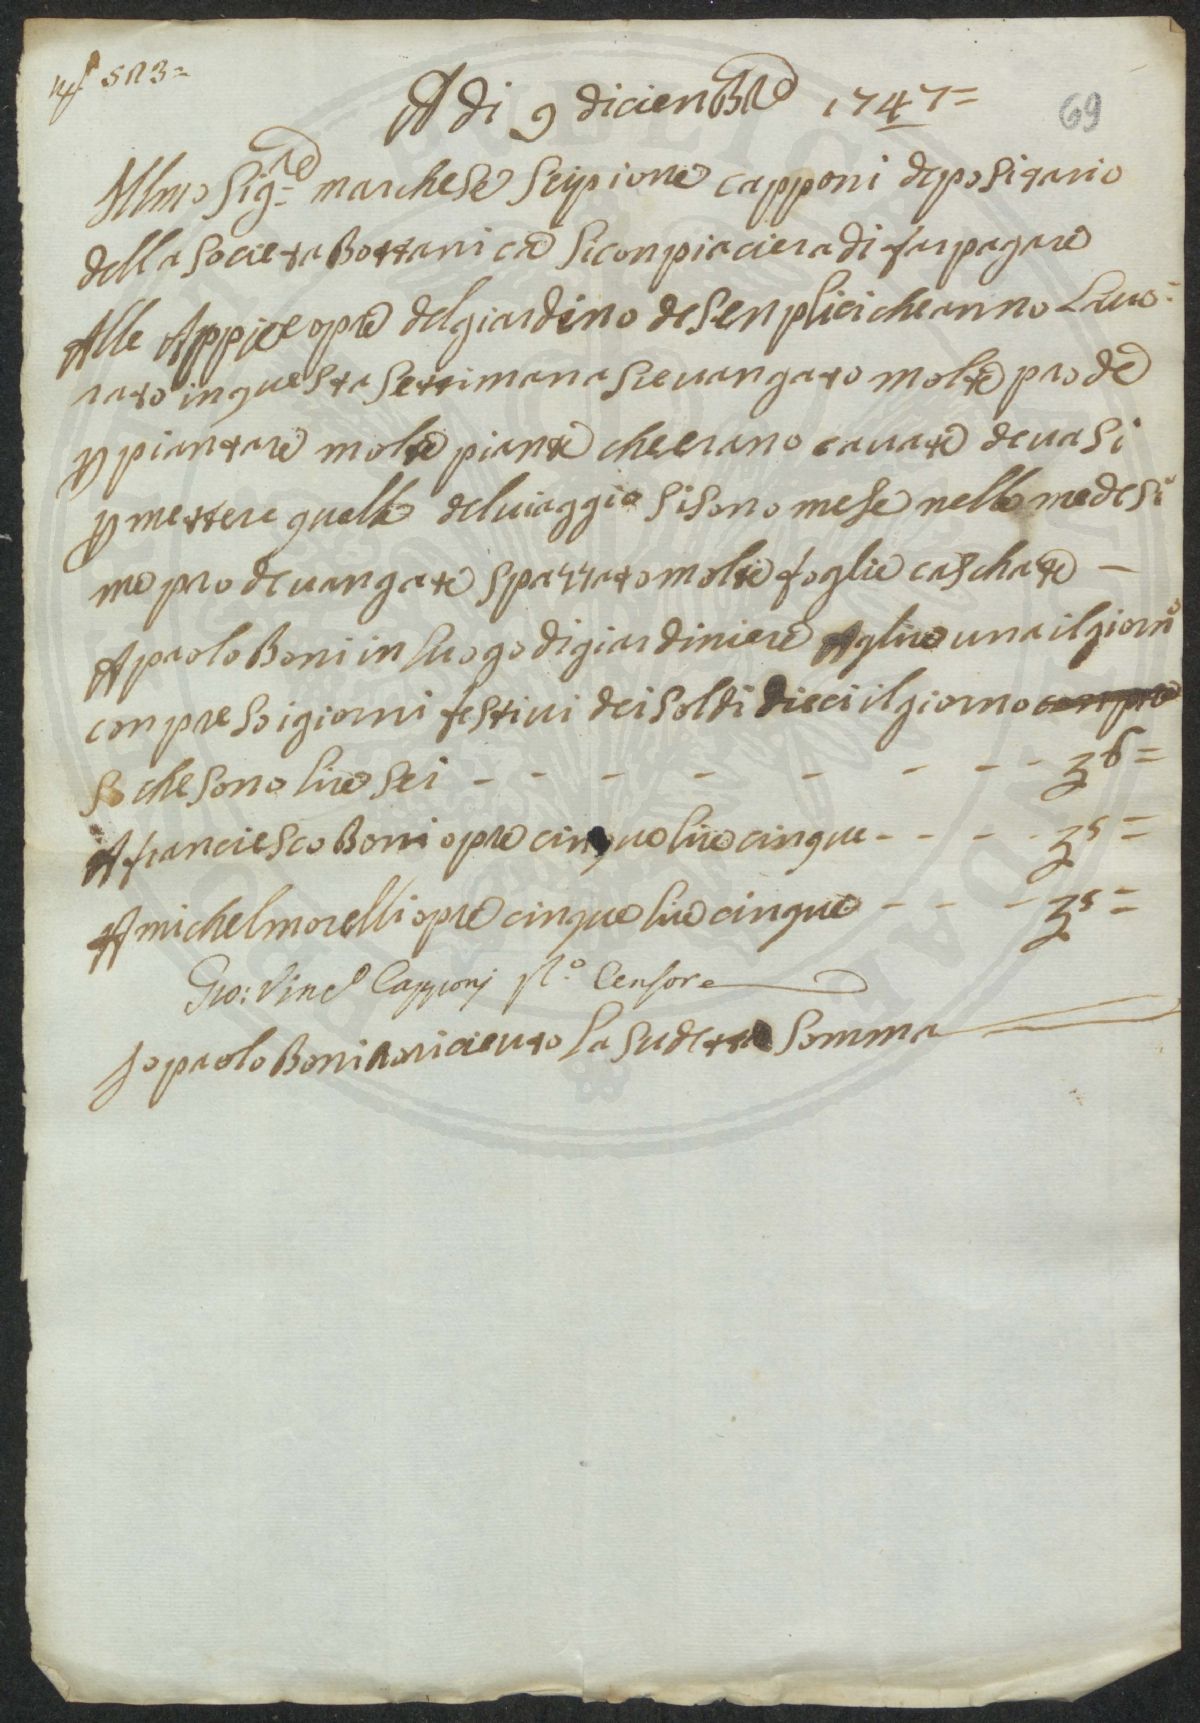 523=
A di 9 dicienBre 1747=
69
Illmo Sig.re marchese Scipione capponi depositario
della Societa Bottanica Si conpiaciera di far pagare
Alle Appie opre del giardino de Senplici che anno Lauo=
rato in questa Settimana Si e uangato molte prode
p piantare molte piante che erano cauate de uasi
p mettere quelle del uiaggio Si Sono mese nelle medesi
me prode uangate Spazzato molte foglie caschate —
A paolo Boni in luogo di giardiniere A lire una il giorno
conpreso i giorni festiui dei Soldi dieci il giorno conpre
So che Sono lire Sei - - - - - - - - 6=
A franciesco Boni opre cinque lire cinque - - - 5=
A michel morelli opre cinque lire cinque - - - - 5=
Gio: Vinc.o Capponi P.o Censore
Io paolo Boni o riceuto La Sudetta Somma